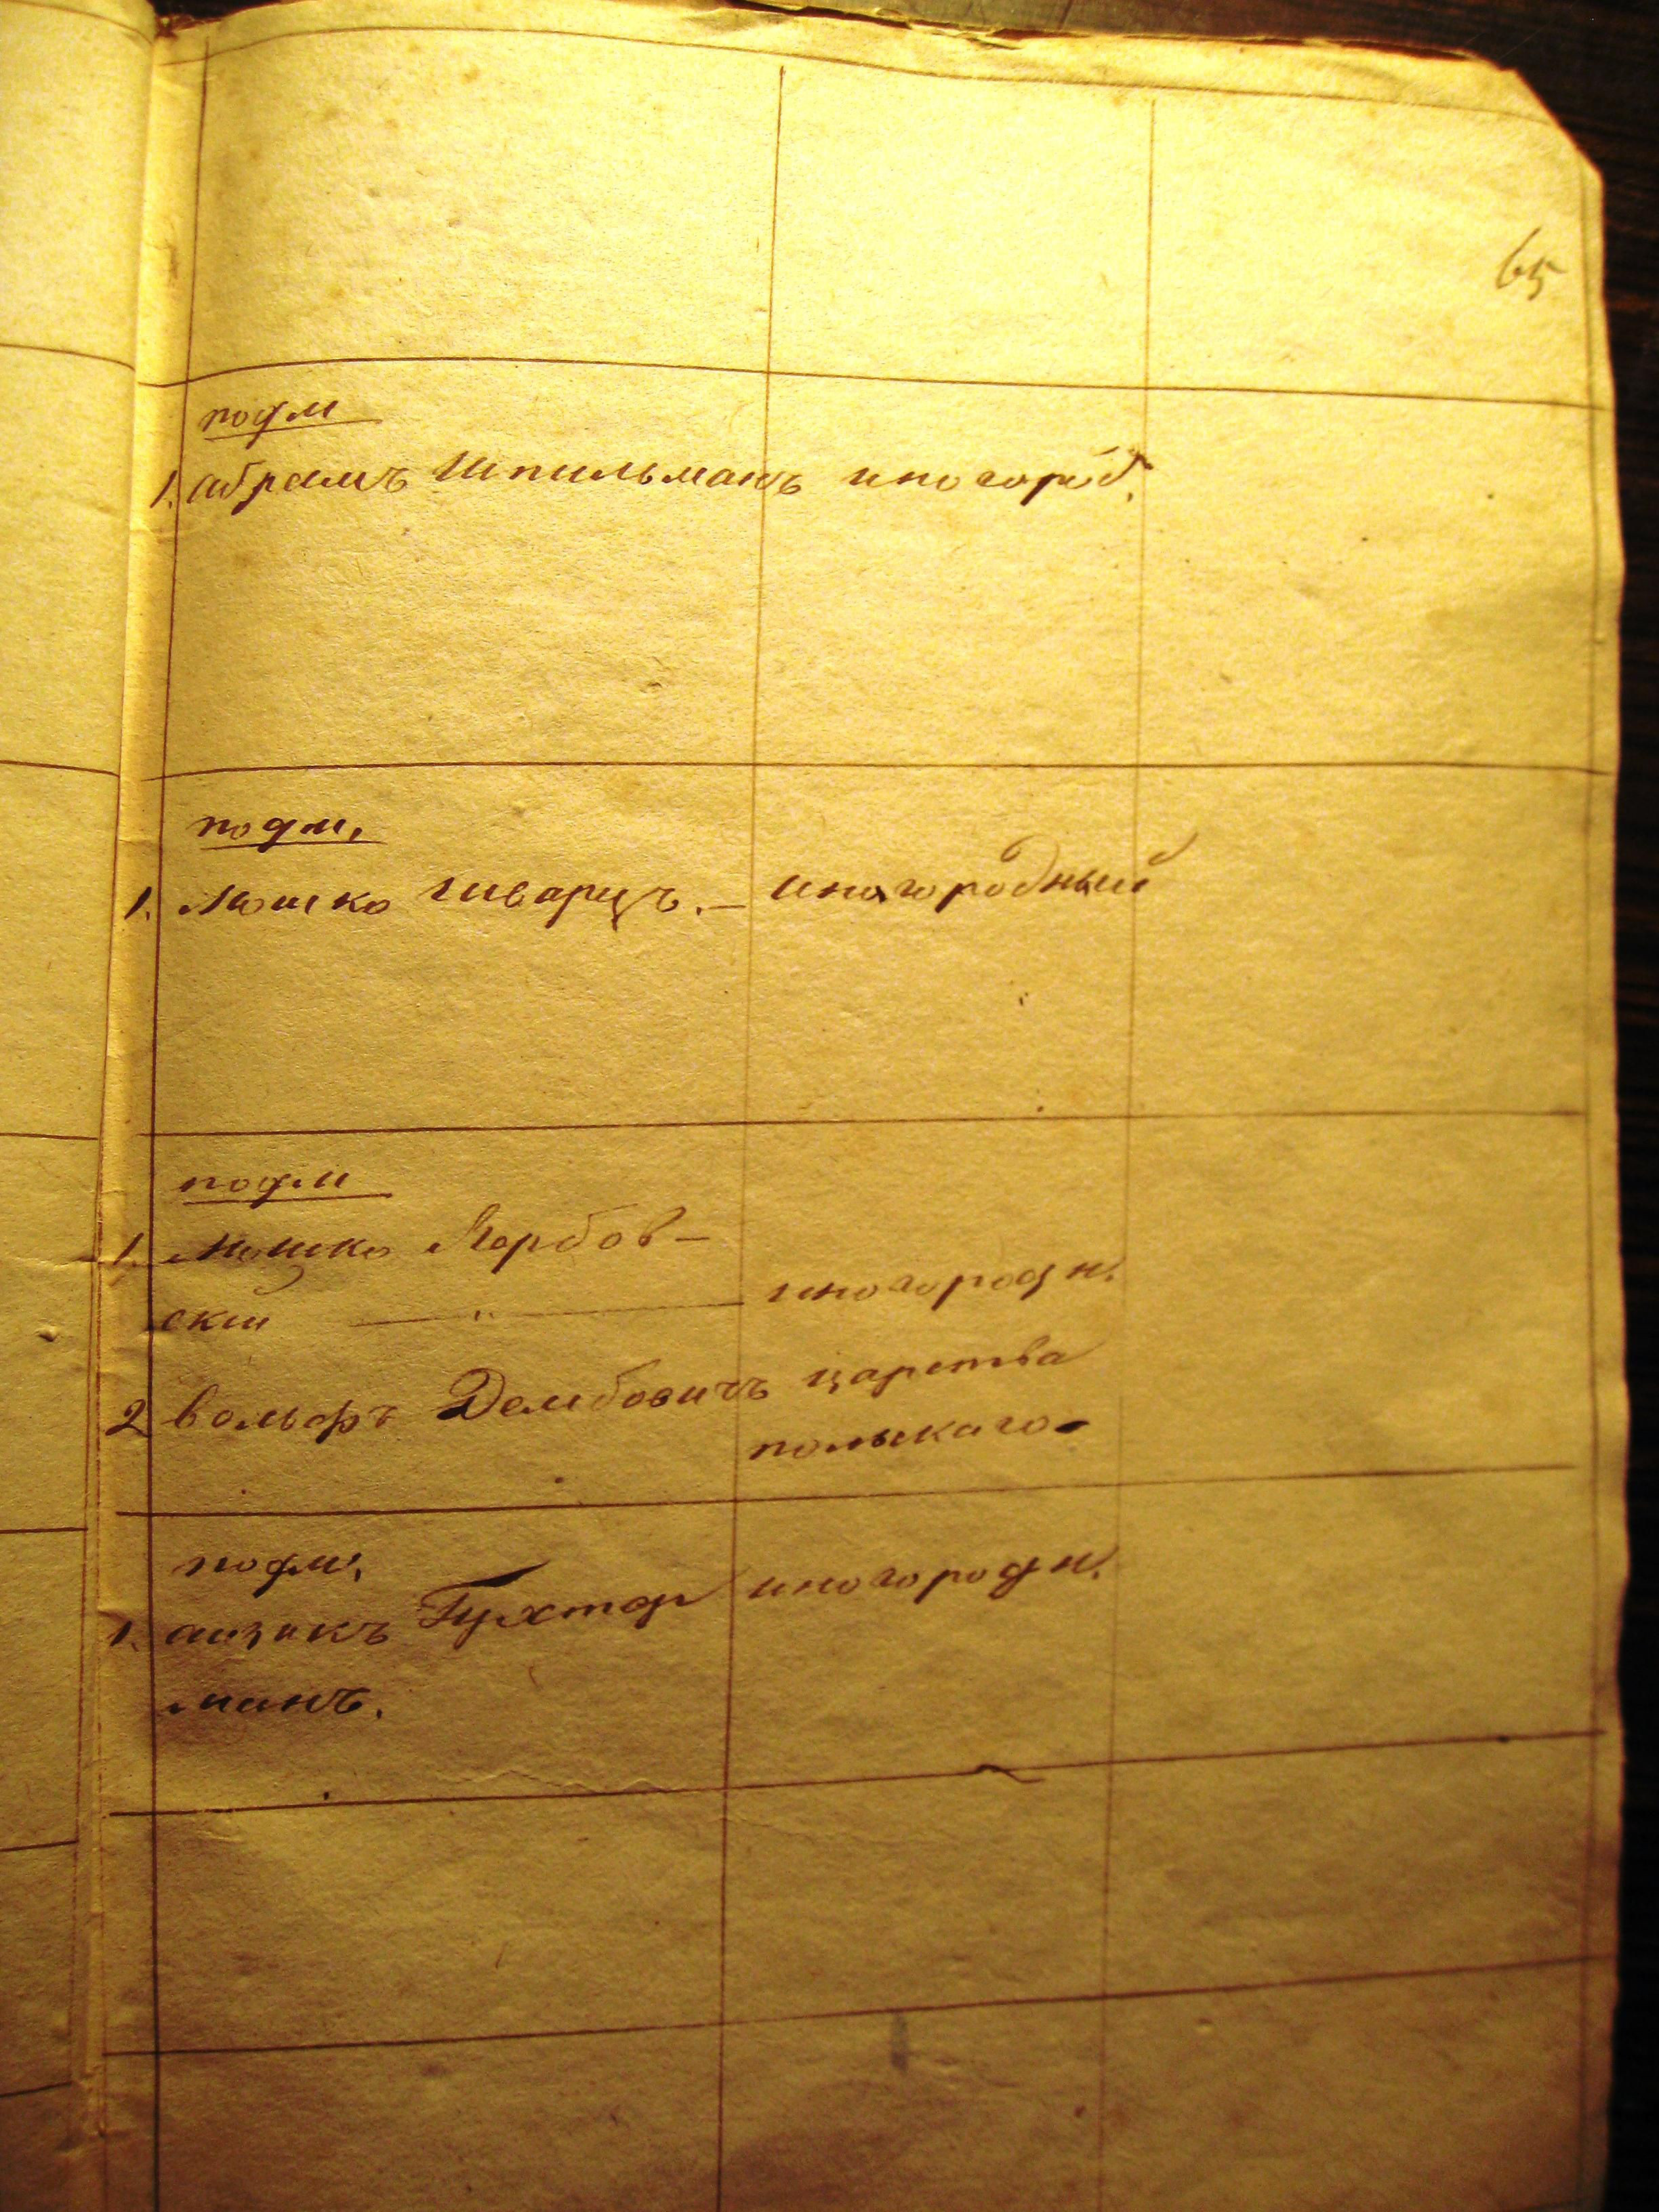 65
подм
1. абрамъ Шпильманъ иногород.
подм.
1. Мошко шварцъ. — иногородный
подм
1. Мошко Корбов—
ский — " — иногородн.
2 вольфъ Дембовичъ царства
польскаго
подм.
1. аизикъ Тухтар иногородн.
манъ.